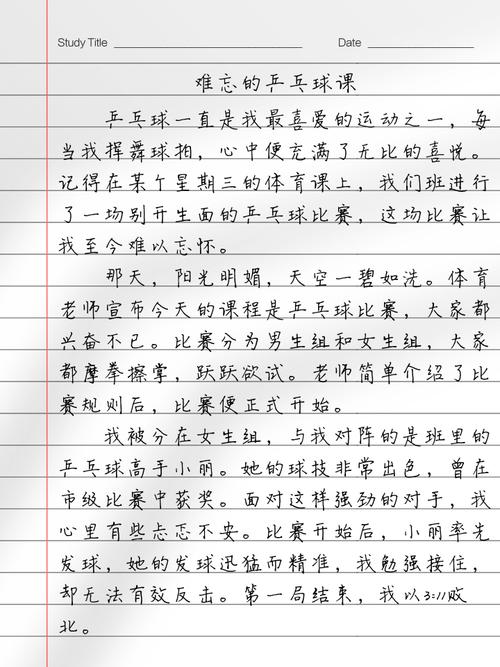 Study Title Date
难忘的乒乓球课
乒乓球一直是我最喜爱的运动之一，每
当我挥舞球拍，心中便充满了无比的喜悦。
记得在某个星期三的体育课上，我们班进行
了一场别开生面的乒乓球比赛，这场比赛让
我至今难以忘怀。
那天，阳光明媚，天空一碧如洗。体育
老师宣布今天的课程是乒乓球比赛，大家都
兴奋不已。比赛分为男生组和女生组，大家
都摩拳擦掌，跃跃欲试。老师简单介绍了比
赛规则后，比赛便正式开始。
我被分在女生组，与我对阵的是班里的
乒乓球高手小丽。她的球技非常出色，曾在
市级比赛中获奖。面对这样强劲的对手，我
心里有些忐忑不安。比赛开始后，小丽率先
发球，她的发球迅猛而精准，我勉强接住，
却无法有效反击。第一局结束，我以3:11败
北。